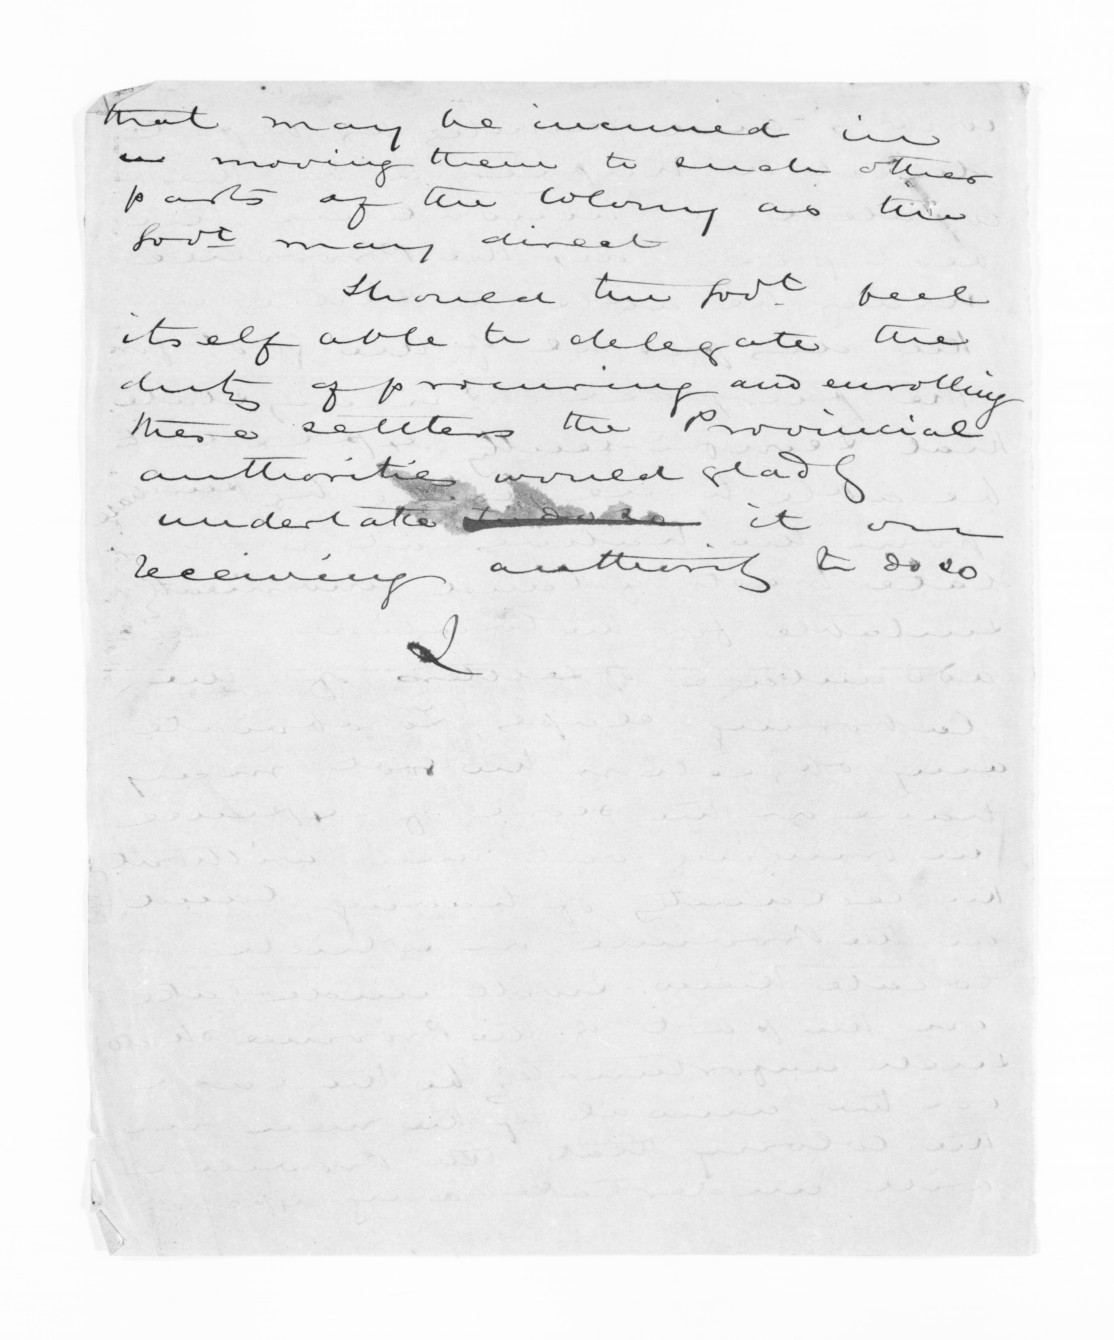 that may be incurred in
in moving them to such other
parts of the Colony as the
Govt may direct
Should the Govt feel
itself able to delegate the
duty of procuring and enrolling
these settlers the Provincial
authorities would gladly
undertake to do so it on
receiving authority to do so
I